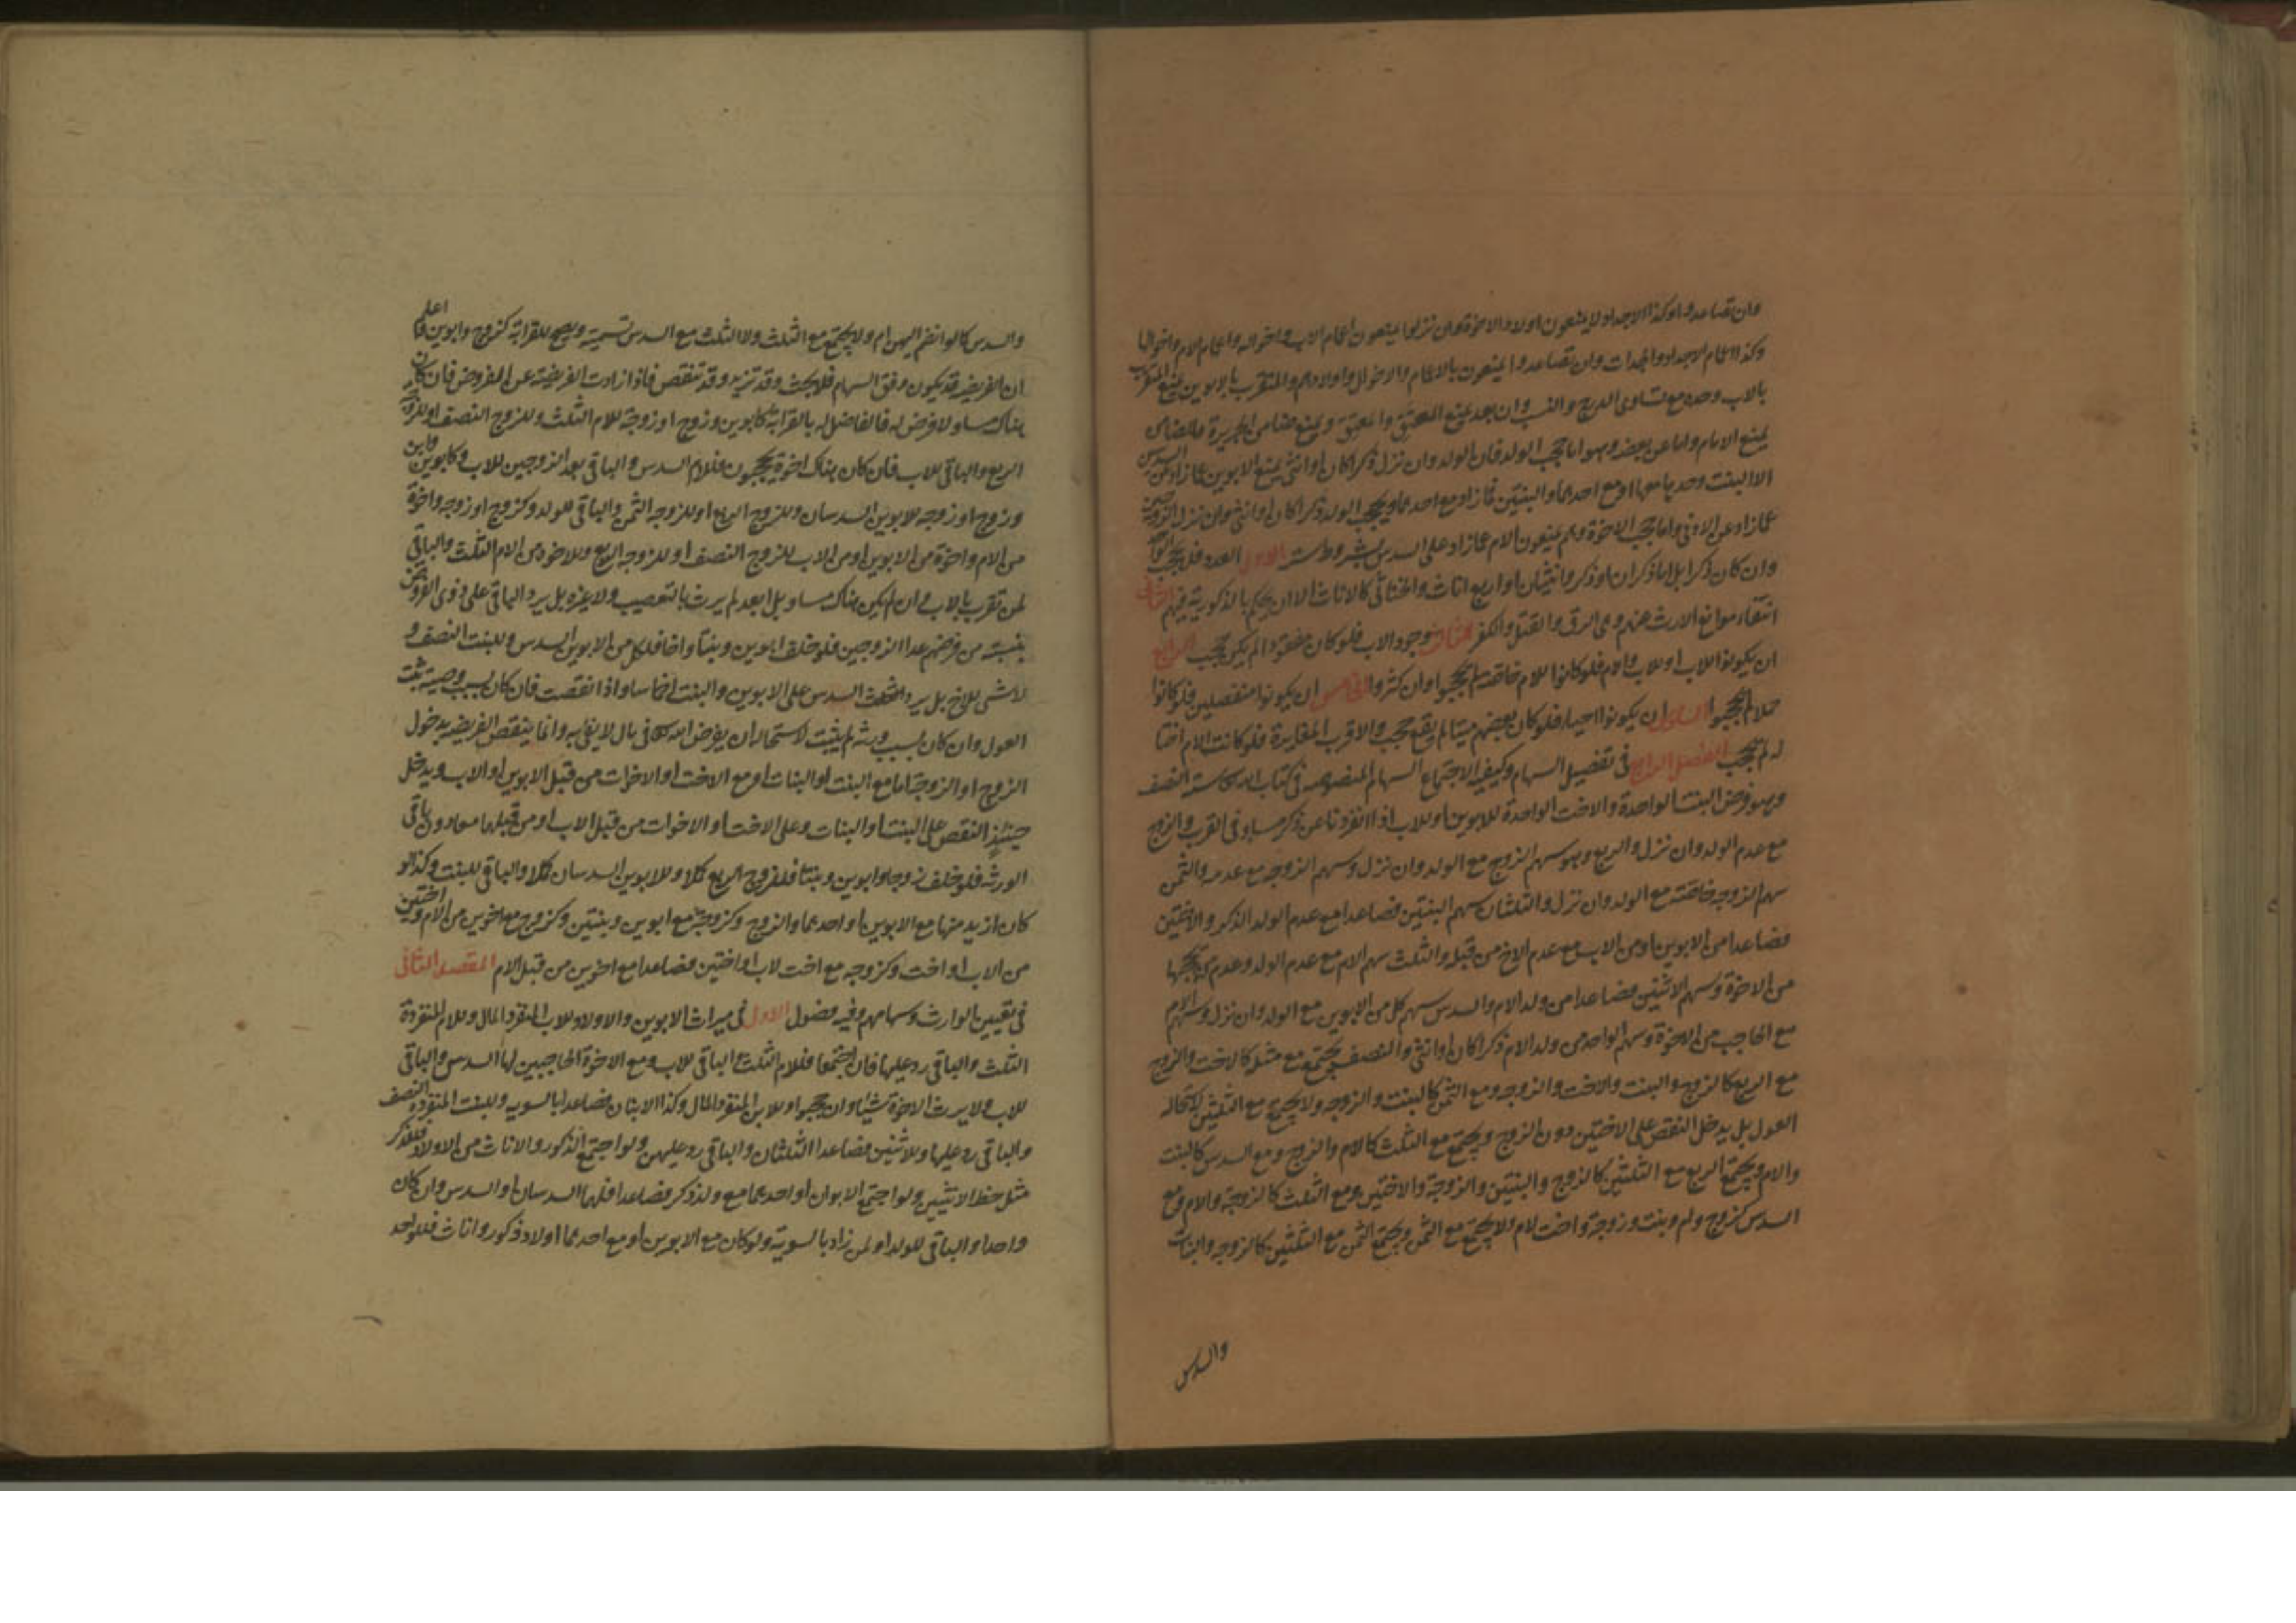 وان تصاعدوا وكذا الاجداد لا يمنعون اولاد الاخوة وان نزلوا يمنعون اعمام الاب واخواله واعمام الام واخوالها
وكذا اعمام الاجداد والجدات وان تصاعدوا يمنعون بالاعمام والاخوال واولادهم والمتقرب بالابوين يمنع المتقرب
بالاب وحده مع تساوى الدرج والنسب وان بعد يمنع المعتق والمعتق ويمنع ضامن الجريرة والضامن
يمنع الامام واما عن بعضه وهو اما حجب الولد فان الولد وان نزل ذكرا كان او انثى يمنع الابوين عما زاد عن السدس
الا البنت وحدها معهما او مع احدهما والبنتين فما زاد مع احدهما ويحجب الولد ذكرا كان او انثى وان نزل الزوجين
عما زاد عن الادنى واما حجب الاخوة وهم يمنعون الام عما زاد على السدس بشروط ستة الاول العدد فلا يحجب الواحد
وان كان ذكرا بل اما ذكران او ذكر وانثيان او اربع اناث والخناثى كالاناث الا ان يحكم بالذكورية فيهم الثانى
انتفاء موانع الارث عنهم وهى الرق والقتل والكفر الثالث وجود الاب فلو كان مفقودا لم يكن حجب الرابع
ان يكونوا للاب او للاب والام فلو كانوا للام خاصة لم يحجبوا وان كثروا الخامس ان يكونوا منفصلين فلو كانوا
حملا لم يحجبوا السادس ان يكونوا احياء فلو كان بعضهم ميتا لم يقع حجب والاقرب المغايرة فلو كانت الام اختا
له لم يحجب الفصل الرابع فى تفصيل السهام وكيفية الاجتماع السهام المنصوصه فى كتاب الله ستة النصف
وهو فرض البنت الواحدة والاخت الواحدة للابوين او للاب اذا انفردتا عن ذكر مساو فى القرب والزوج
مع عدم الولد وان نزل والربع وهو سهم الزوج مع الولد وان نزل وسهم الزوجه مع عدمه والثمن
سهم الزوجه خاصة مع الولد وان نزل والثلثان سهم البنتين فصاعدا مع عدم الولد الذكر والاختين
فصاعدا من الابوين او من الاب مع عدم الاخ من قبله والثلث سهم الام مع عدم الولد وعدم من يحجبها
من الاخوة وسهم الاثنين فصاعدا من ولد الام والسدس سهم كل من الابوين مع الولد وان نزل وسهم الام
مع الحاجب من الاخوة وسهم الواحد من ولد الام ذكرا كان او انثى والنصف يجتمع مع مثله كالاخت والزوج
مع الربع كالزوج والبنت والاخت والزوجه ومع الثمن كالبنت والزوجه ولا يجتمع مع الثلثين لاستحاله
العول بل يدخل النقص على الاختين دون الزوج ويجتمع مع الثلث كالام والزوج ومع السدس كالبنت
والام ويجتمع الربع مع الثلثين كالزوج والبنتين والزوجة والاختين ومع الثلث كالزوجة والام ومع
السدس كزوج وام وبنت وزوجة واخت لام ولا يجتمع مع الثمن ويجتمع الثمن مع الثلثين كالزوجه والبنات
والسدس
والسدس كالو انضم اليهن ام ولا يجتمع مع الثلث ولا الثلث مع السدس تسمية ويصح للقرابة كزوج وابوين اعلم
ان الفريضه قد يكون وفق السهام فلا بحث وقد تزيد وقد تنقص فاذا زادت الفريضة عن الفروض فان كان
هناك مساو لا فرض له فالفاضل له بالقرابة كابوين وزوج او زوجة للام الثلث وللزوج النصف او للزوجة
الربع والباقى للاب فان كان هناك اخوة يحجبون فللام السدس والباقى بعد الزوجين للاب وكابوين وابن
وزوج او زوجه للابوين السدسان وللزوج الربع او للزوجه الثمن والباقى للولد وكزوج او زوجه واخوة
من الام واخوة من الابوين او من الاب للزوج النصف او للزوجه الربع وللاخوة من الام الثلث والباقى
لمن تقرب بالاب وان لم يكن هناك مساو بل ابعد لم يرث بالتعصيب ولا غيره بل يرد الباقى على ذوى الفروض
بنسبة من فرضهم عدا الزوجين فلو خلف ابوين وبنتا واخا فلكل من الابوين السدس وللبنت النصف و
لا شى للاخ بل يرد السدس على الابوين والبنت اخماسا واذا نقصت فان كان بسبب وصية ثبت
العول وان كان بسبب ورثة لم يثبت لاستحاله ان يفرض الله فى مال لا يفى به وانما ينقص الفريضه بدخول
الزوج او الزوجة اما مع البنت او البنات او مع الاخت او الاخوات من قبل الابوين او الاب ويدخل
حينئذ النقص على البنت او البنات وعلى الاخت او الاخوات من قبل الاب او من قبلهما معا دون باقى
الورثة فلو خلف زوجا وابوين وبنتا فللزوج الربع كملا وللابوين السدسان كملا والباقى للبنت وكذا لو
كان ازيد منها مع الابوين او احدهما والزوج وكزوجة مع ابوين وبنتين وكزوج مع اخوين من الام واختين
من الاب او اخت وكزوجه مع اخت لاب او اختين فصاعدا مع اخوين من قبل الام المقصد الثانى
فى تعيين الوارث وسهامهم وفيه فصول الاول فى ميراث الابوين والاولاد للاب المنفرد المال وللام المنفردة
الثلث والباقى رد عليها فان اجتمعا فللام الثلث والباقى للاب ومع الاخوة الحاجبين لها السدس والباقى
للاب ولا يرث الاخوة شيئا وان حجبوا وللابن المنفرد المال وكذا الابنان فصاعدا بالسويه وللبنت المنفردة النصف
والباقى رد عليها وللاثنين فصاعدا الثلثان والباقى رد عليهن ولو اجتمع الذكور والاناث من الاولاد فللذكر
مثل حظ الانثيين ولو اجتمع الابوان او احدهما مع ولد ذكر فصاعدا فلهما السدسان او السدس وان كان
واحدا والباقى للولد او لمن زاد بالسوية ولو كان مع الابوين او مع احدهما اولاد ذكور واناث فللواحد